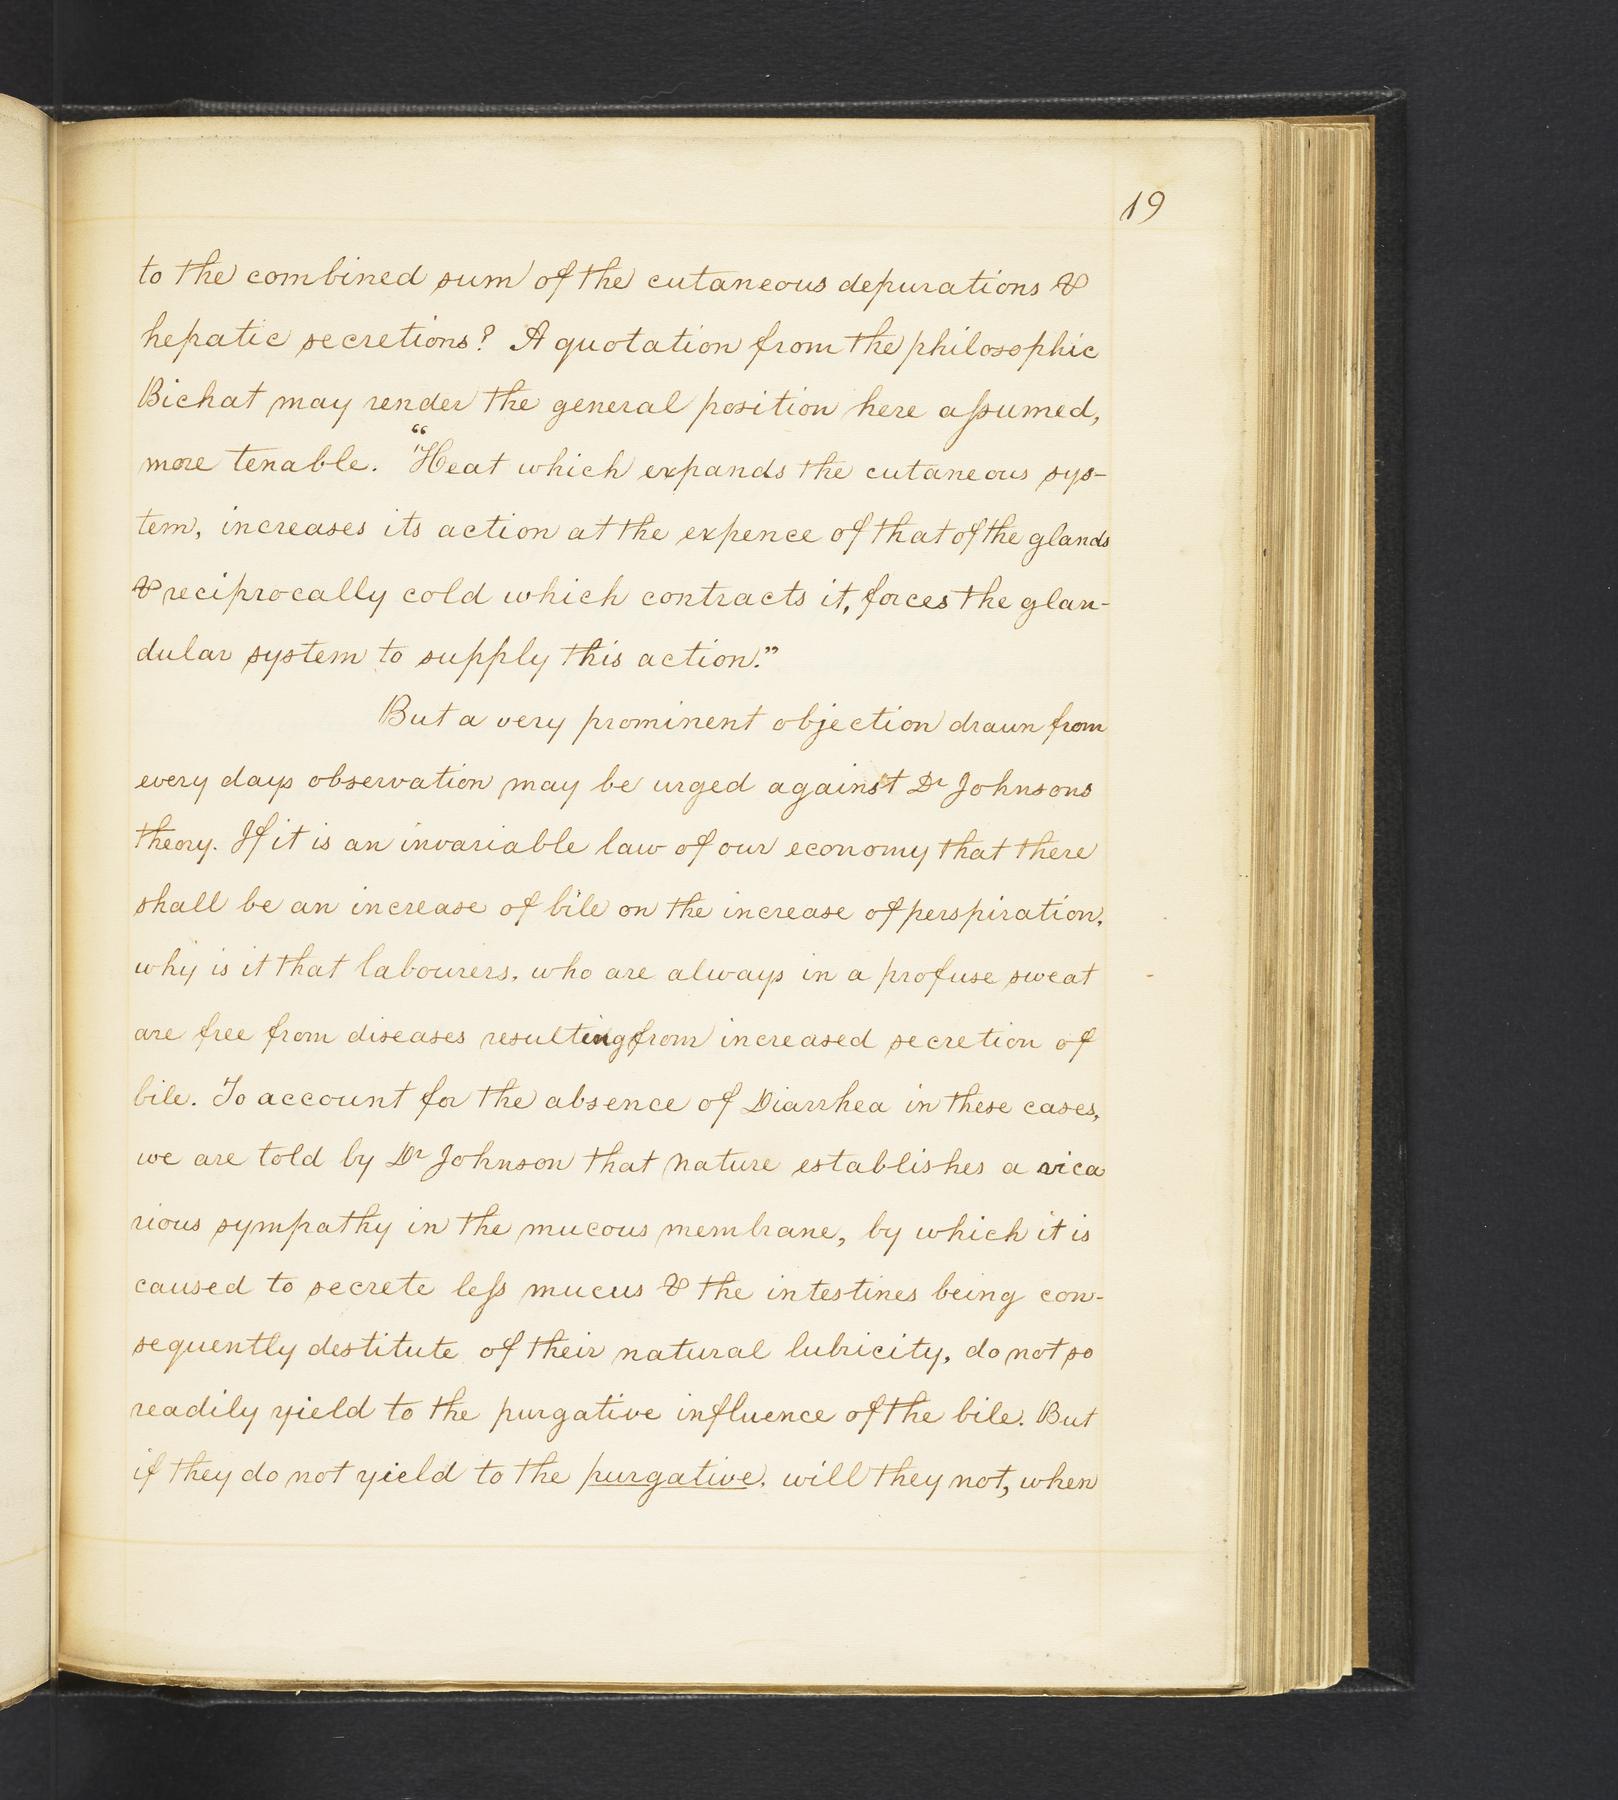 19
to the combined sum of the cutaneous depurations &
hepatic secretions? A quotation from the philosophic
Bichat may render the general position here aſsumed,
more tenable. "Heat which expands the cutaneous sys-
tem, increases its action at the expence of that of the glands
& reciprocally cold which contracts it, forces the glan-
dular system to supply this action."
But a very prominent objection drawn from
every days observation may be urged against Dr Johnsons
theory. If it is an invariable law of our economy that there
shall be an increase of bile on the increase of perspiration,
why is it that labourers, who are always in a profuse sweat
are free from diseases resulting from increased secretion of
bile. To account for the absence of Diarrhea in these cases,
we are told by Dr Johnson that nature establishes a vica
rious sympathy in the mucous membrane, by which it is
caused to secrete leſs mucus & the intestines being con-
sequently destitute of their natural lubricity, do not so
readily yield to the purgative influence of the bile. But
if they do not yield to the purgative, will they not, when